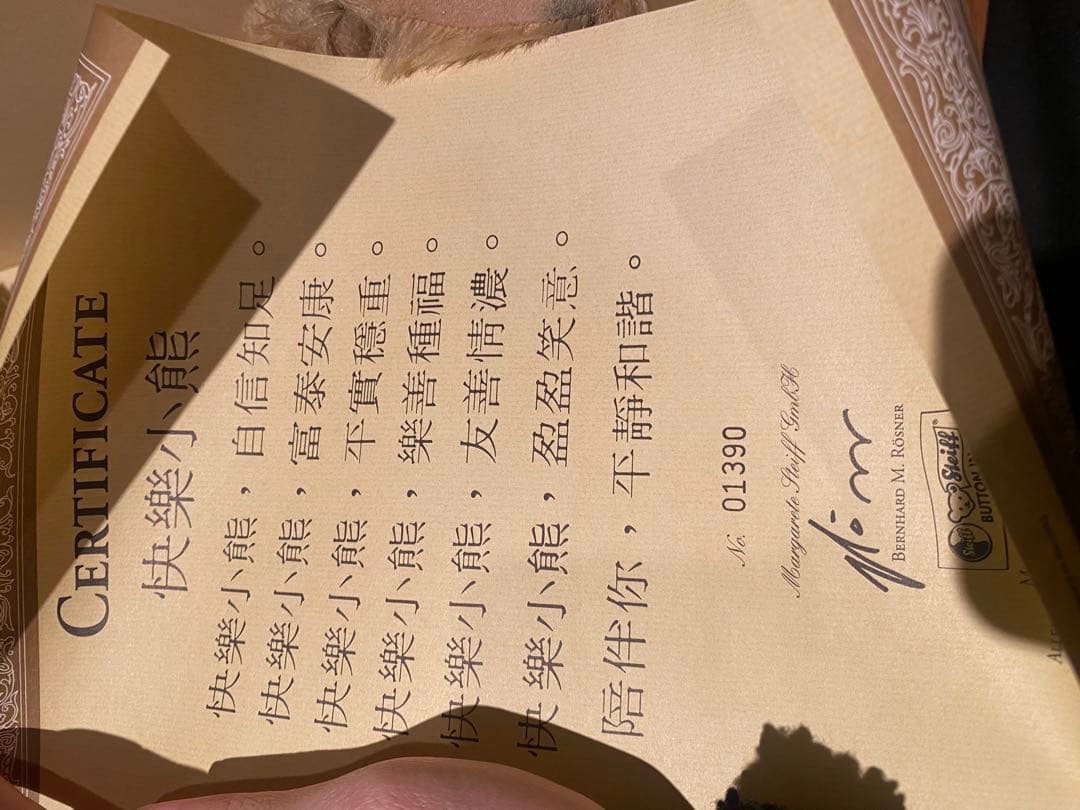 CERTIFICATE
快樂小熊
快樂小熊，自信知足。
快樂小熊，富泰安康。
快樂小熊，平實穩重。
快樂小熊，樂善種福。
快樂小熊，友善情濃。
快樂小熊，盈盈笑意。
陪伴你，平靜和諧。
No. 01390
Margarete Steiff GmbH
BERNHARD M. RÖSNER
Steiff Steiff®
BUTTON